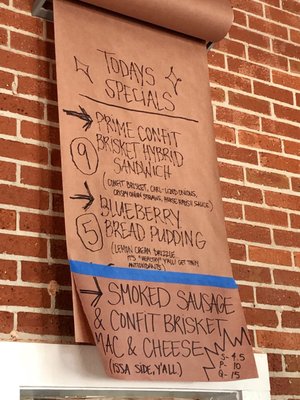 TODAYS
SPECIALS
PRIME CONFIT
BRISKET HYBRID
SANDWICH
9
(CONFIT BRISKET, ONIONS,
CRISPY ONION STRAWS, HOUSE ROAST SAUCE)
BLUEBERRY
BREAD PUDDING
5
(LEMON CREAM DRIZZLE
IT'S "HEALTHY" Y'ALL! GOT THEM
ANTIOXIDANTS)
SMOKED SAUSAGE
& CONFIT BRISKET
MAC & CHEESE
(ISSA SIDE, Y'ALL)
S- 4.5
P- 10
Q- 15